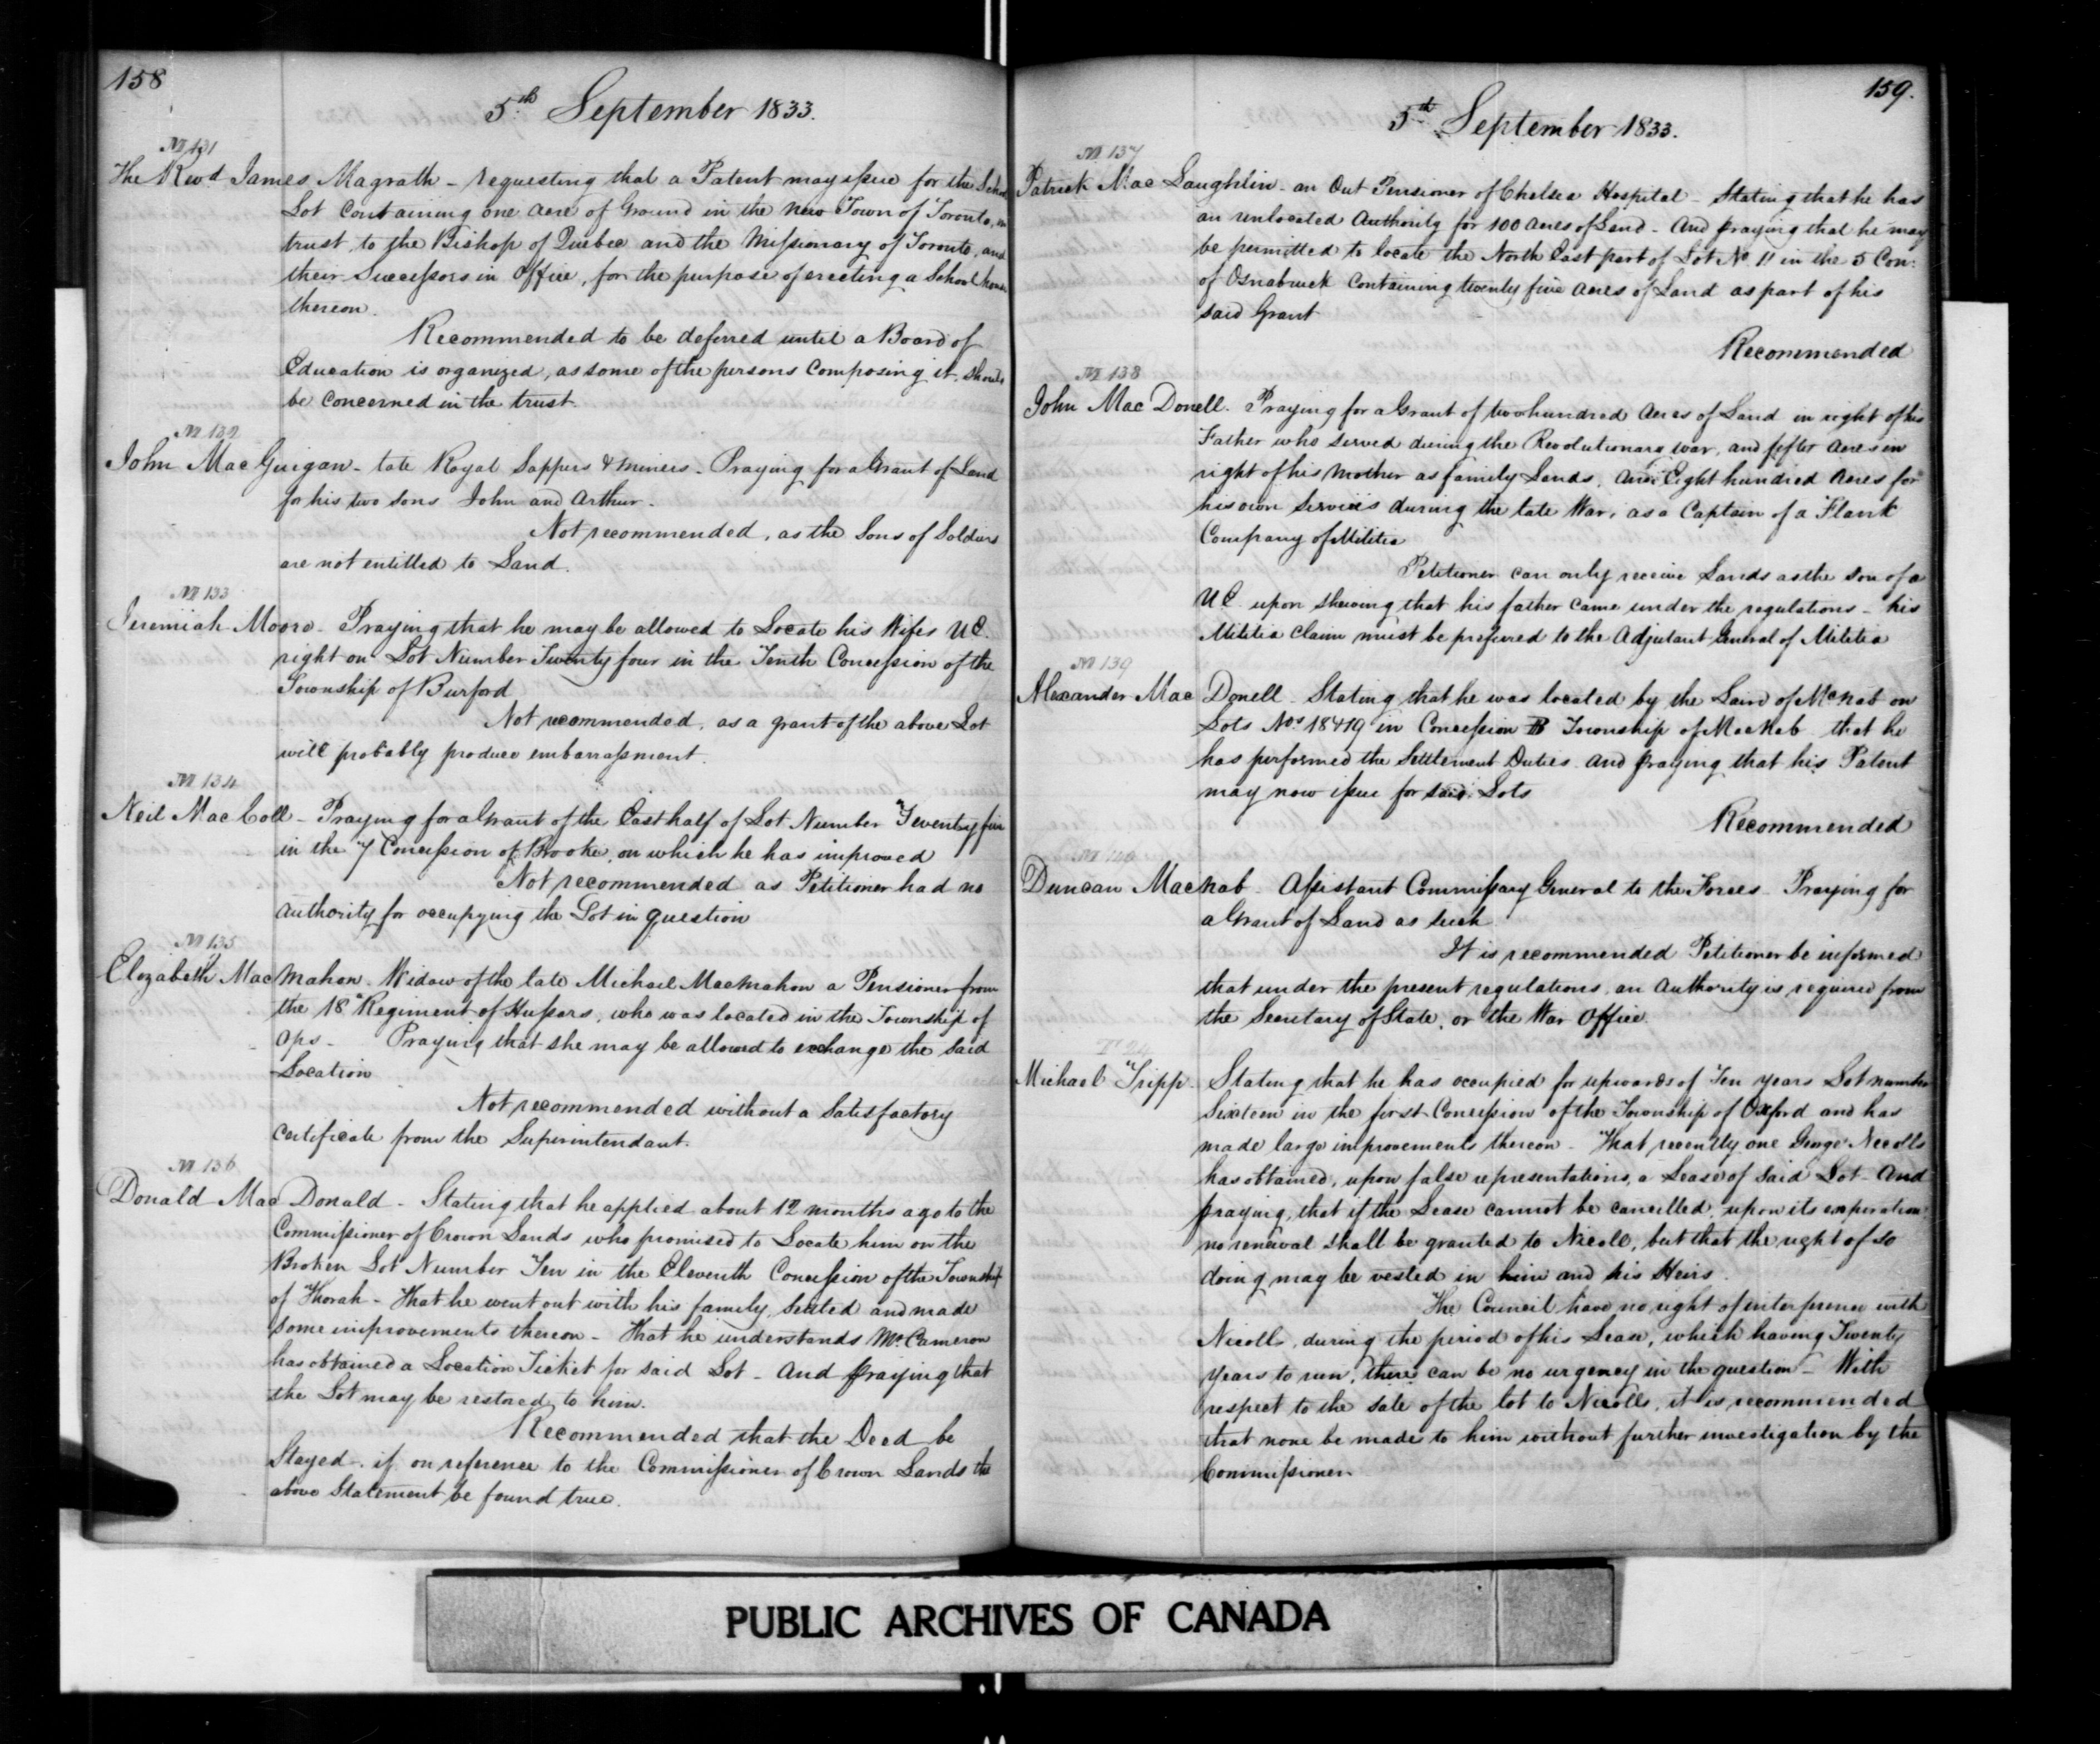 158
5th September 1833.
M 131
The Revd James Magrath - requesting that a Patent may issue for the School
Lot containing one acre of Ground in the new Town of Toronto, in
trust to the Bishop of Quebec and the Missionary of Toronto, and
their Successors in Office, for the purpose of erecting a School house
thereon.
Recommended to be deferred until a Board of
Education is organized, as some of the persons composing it, should
be concerned in the trust.
M 132
John MacGuigan - late Royal Sappers & Miners - Praying for a Grant of Land
for his two sons John and Arthur.
Not recommended, as the Sons of Soldiers
are not entitled to Land.
M 133
Jeremiah Moore - Praying that he may be allowed to Locate his Wifes U.E.
right on Lot Number Twenty four in the Tenth Concession of the
Township of Burford
Not recommended, as a grant of the above Lot
will probably produce embarrassment.
M 134
Neil MacColl - Praying for a Grant of the East half of Lot Number Twenty five
in the 7 Concession of Brooke, on which he has improved
Not recommended as Petitioner had no
authority for occupying the Lot in question
M 135
Elizabeth MacMahon - Widow of the late Michael MacMahon a Pensioner from
the 18th Regiment of Hussars, who was located in the Township of
Ops - Praying that she may be allowed to exchange the said
Location
Not recommended without a Satisfactory
Certificate from the Superintendant.
M 136
Donald MacDonald - Stating that he applied about 12 months ago to the
Commissioner of Crown Lands who promised to Locate him on the
Broken Lot Number Ten in the Eleventh Concession of the Township
of Thorah - That he went out with his family, Seated and made
some improvements thereon - That he understands Mr. Cameron
has obtained a Location Ticket for said Lot - And Praying that
the Lot may be restored to him.
Recommended that the Deed be
Stayed - if on reference to the Commissioner of Crown Lands the
above Statement be found true.
159.
5th September 1833.
M 137
Patrick MacLaughlin - an Out Pensioner of Chelsea Hospital - Stating that he has
an unlocated Authority for 100 acres of Land - And praying that he may
be permitted to locate the North East part of Lot No 11 in the 5 Con:
of Osnabruck containing twenty five acres of Land as part of his
said Grant
Recommended
M 138
John MacDonell. Praying for a Grant of two hundred Acres of Land in right of his
Father who served during the Revolutionary War, and fifty acres in
right of his Mother as family Lands, And Eight hundred Acres for
his own Services during the late War, as a Captain of a Flank
Company of Militia
Petitioner can only receive Lands as the son of a
U.E. upon shewing that his father came under the regulations - his
Militia claim must be preferred to the Adjutant General of Militia
M 139
Alexander MacDonell - Stating that he was located by the Laird of McNab on
Lots Nos 18 & 19 in Concession B Township of MacNab that he
has performed the Settlement Duties and praying that his Patent
may now issue for said Lots
Recommended
M 140
Duncan MacNab - Assistant Commissary General to the Forces - Praying for
a Grant of Land as such
It is recommended Petitioner be informed
that under the present regulations, an Authority is required from
the Secretary of State, or the War Office.
T 24
Michael Tripp - Stating that he has occupied for upwards of Ten years Lot number
Sixteen in the first Concession of the Township of Oxford and has
made large improvements thereon - That recently one George Nicolls
has obtained, upon false representations, a Lease of said Lot - And
praying, that if the Lease cannot be cancelled, upon its expiration,
no renewal shall be granted to Nicoll, but that the right of so
doing may be vested in him and his Heirs.
The Council have no right of interference with
Nicolls, during the period of his Lease, which having Twenty
years to run, there can be no urgency in the question - With
respect to the sale of the lot to Nicolls, it is recommended
that none be made to him without further investigation by the
Commissioner
PUBLIC ARCHIVES OF CANADA